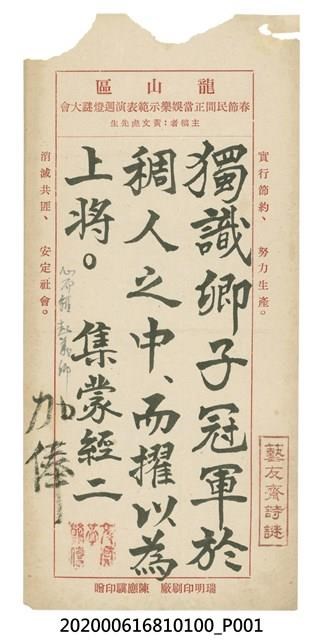 龍山區
春節民間正當娛樂示範表演迴燈謎大會
主稿者：黃文虎先生
實行節約、　努力生產。
獨識卿子冠軍於
稠人之中、而擢以為
上將。　集蒙經二
加俸
消滅共匪、　安定社會。
藝友齋詩謎
瑞明印刷廠　陳應麟印贈
202000616810100_P001